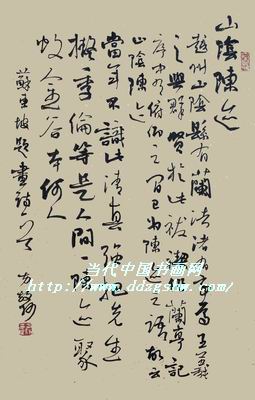 山陰陳迹
越州山陰縣有蘭渚渚有亭王羲
之與群賢於此祓禊作蘭亭記
序中有俯仰之間已為陳迹之語故云
山陰陳迹
當年不識此清真強把先生
擬季倫等是人間一陳迹聚
蚊金谷本何人
蘇東坡題畫詩一首
当代中国书画网
http://www.ddzgshw.com